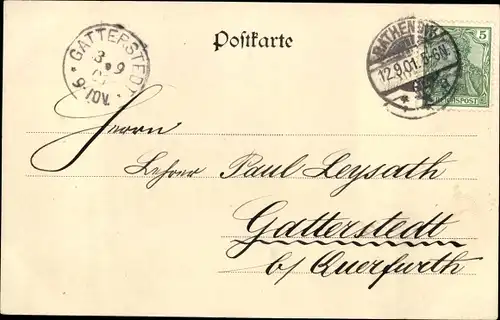 Postkarte
GATTERSTEDT
9-10V.
12.9.01. 5-6N.
5
REICHSPOST
Herrn
Lehrer Paul Leysath
Gatterstedt
b/ Querfurth